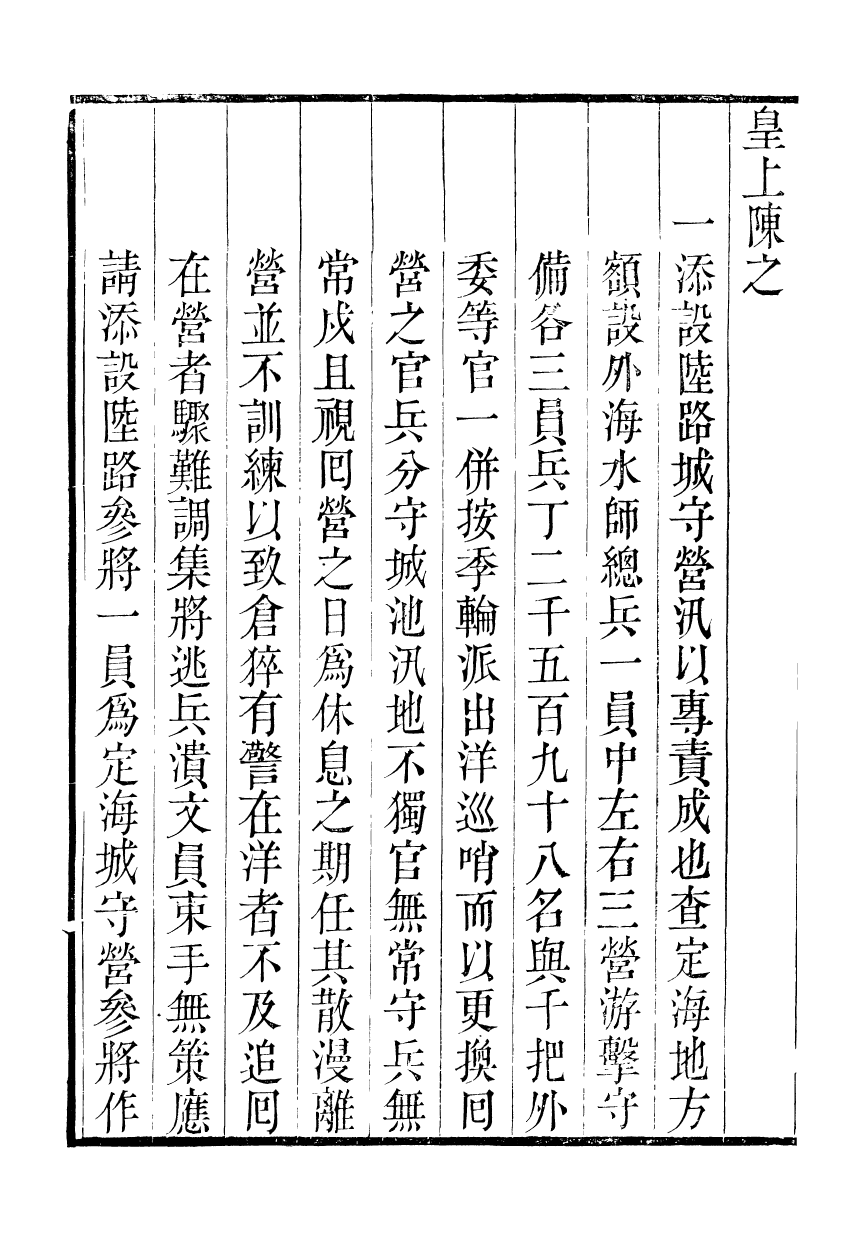 皇上陳之
一添設陸路城守營汛以專責成也查定海地方
額設外海水師總兵一員中左右三營游擊守
備各三員兵丁二千五百九十八名與千把外
委等官一併按季輪派出洋巡哨而以更換囘
營之官兵分守城池汛地不獨官無常守兵無
常戍且視囘營之日爲休息之期任其散漫離
營並不訓練以致倉猝有警在洋者不及追囘
在營者驟難調集將逃兵潰文員束手無策應
請添設陸路參將一員爲定海城守營參將作